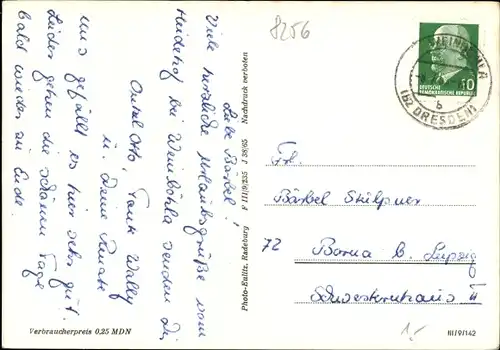 8256
Liebe Bärbel!
Viele herzliche Urlaubsgrüße vom
Heidehof bei Weinböhla senden Dir
Onkel Otto, Tante Wally
u. Deine Renate
Uns gefällt es hier sehr gut.
Leider gehen die schönen Tage
bald wieder zu Ende.
Verbraucherpreis 0,25 MDN
Photo-Eulitz, Radeburg F III/9/235 J 38/65 Nachdruck verboten
WEINBÖHLA
b
(BZ. DRESDEN)
10
DEUTSCHE
DEMOKRATISCHE REPUBLIK
Frl.
Bärbel Stülpner
72 Borna b. Leipzig
Schwesternhaus II
III/9/142